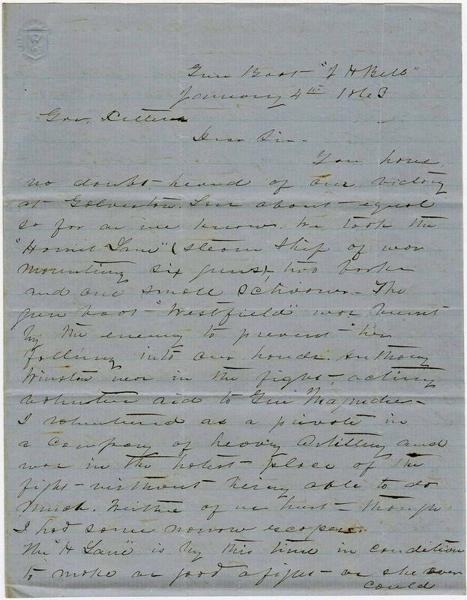 Gun Boat "J H Bell"
January 4th 1863
Gov.
Dear Sir.
You have
no doubt heard of our victory
at Galveston. Loss about equal
so far as we know. We took the
"Harriet Lane" (steam ship of war
mounting six guns), two barks
and one small schooner. The
gun boat "Westfield" was burnt
by the enemy to prevent her
falling into our hands. Anthony
Winston was in the fight, acting
volunteer aid to Gen Magruder
I volunteered as a private in
a company of heavy Artillery and
was in the hotest place of the
fight without being able to do
much. Neither of us hurt though
I had some narrow escapes.
The "H Lane" is by this time in condition
to make as good a fight as she ever
could